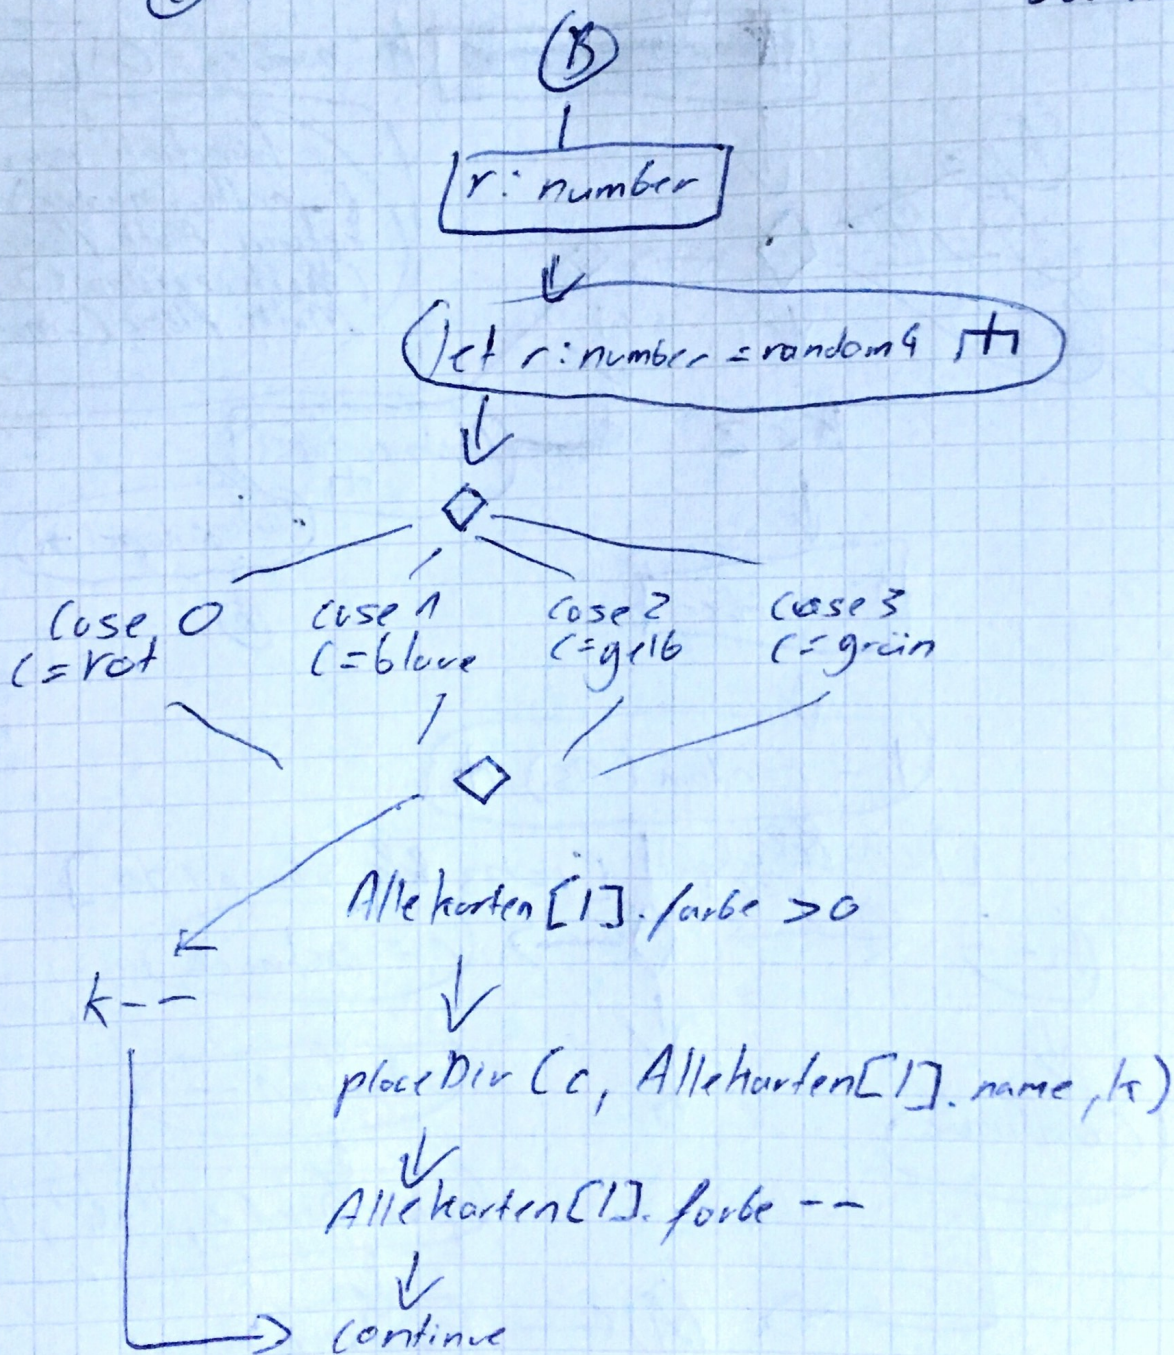 B
r: number
let r:number = random 4
case 0
c=rot
case 1
c=blaue
case 2
c=gelb
case 3
c=grün
Allekarten[1].farbe >0
k--
placeDiv (c, Allekarten[1].name, k)
Allekarten[1].farbe --
continue